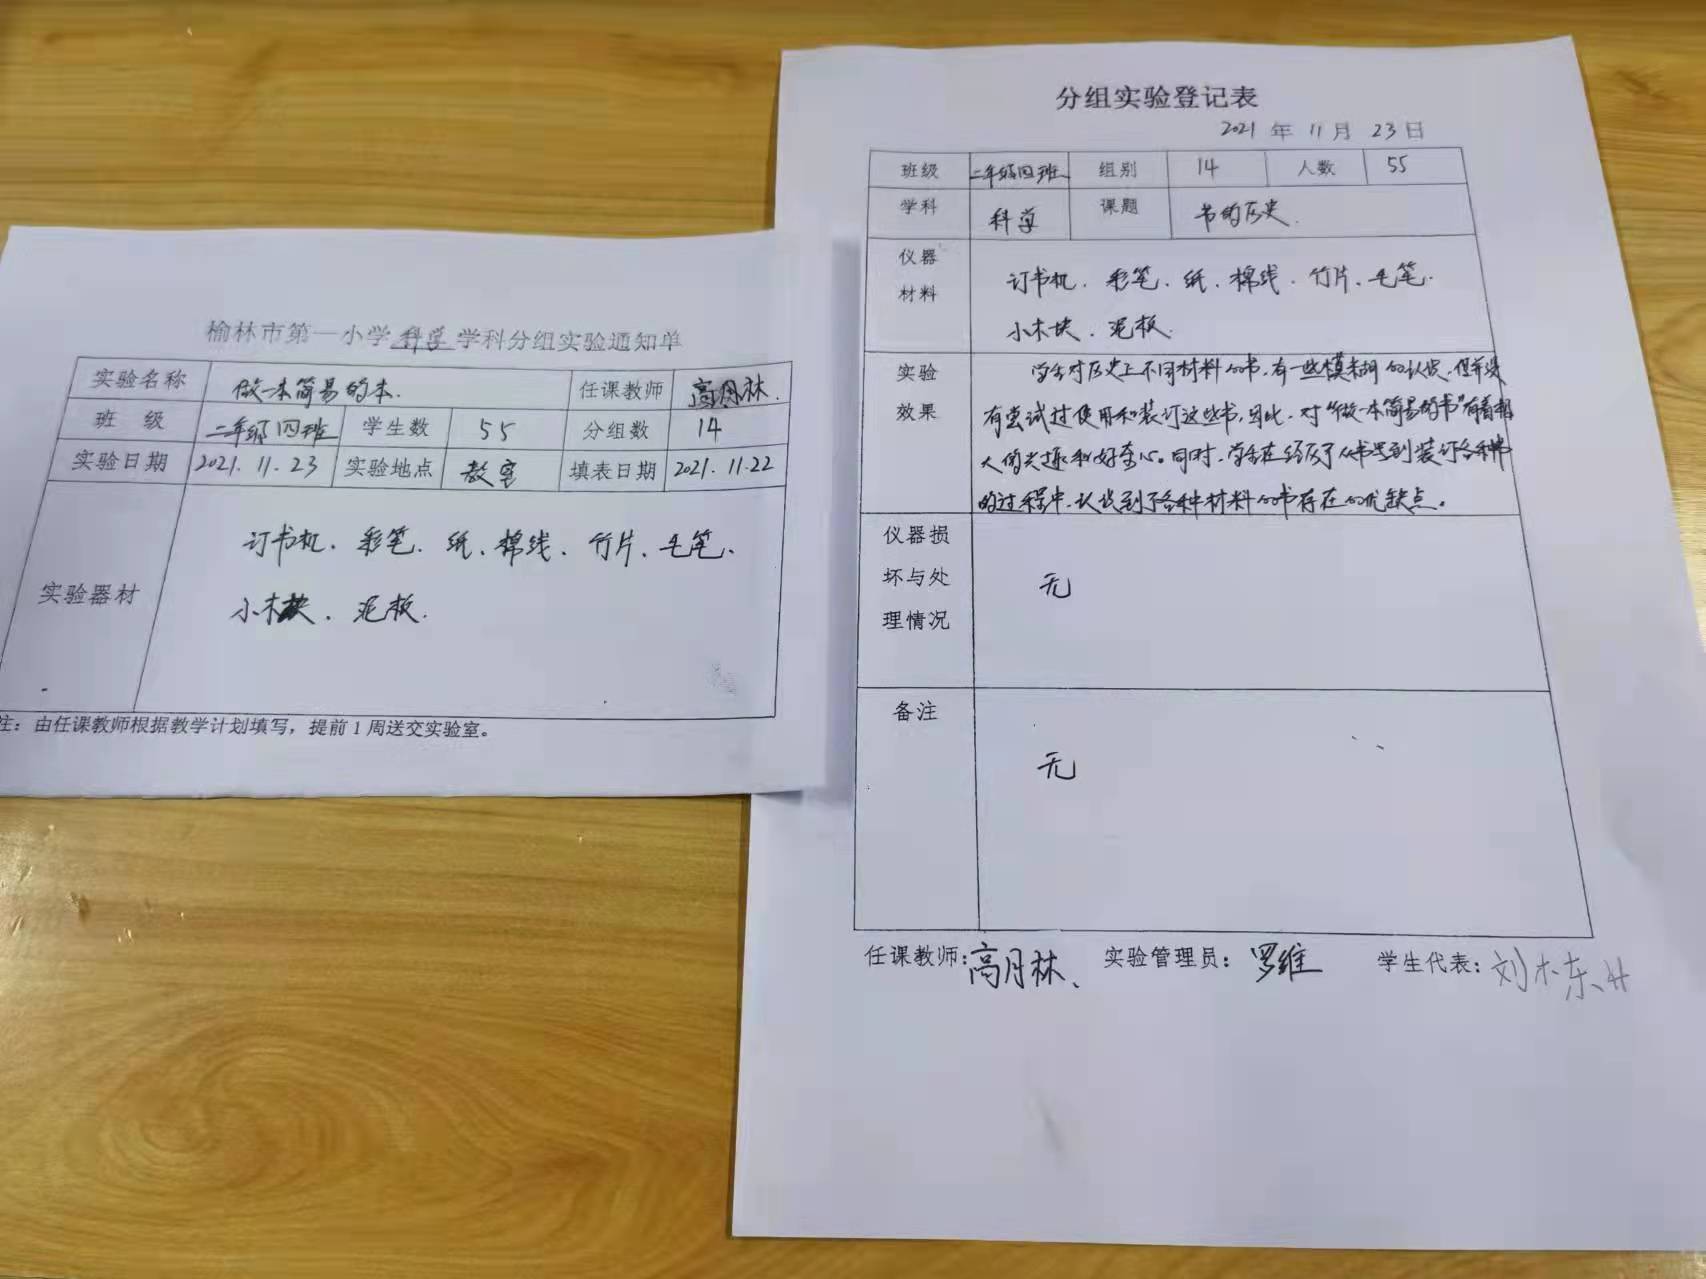 榆林市第一小学科学学科分组实验通知单
实验名称 做一本简易的本. 任课教师 高月林.
班 级 二年级四班 学生数 55 分组数 14
实验日期 2021.11.23 实验地点 教室 填表日期 2021.11.22
实验器材
订书机、彩笔、纸、棉线、竹片、毛笔、
小木块、泥板.
注：由任课教师根据教学计划填写，提前1周送交实验室。
分组实验登记表
2021 年 11 月 23 日
班级 二年级四班 组别 14 人数 55
学科 科学 课题 书的历史.
仪器
材料
订书机、彩笔、纸、棉线、竹片、毛笔.
小木块、泥板.
实验
效果
学生对历史上不同材料的书,有一些模糊的认识,但并没
有尝试过使用和装订这些书,因此,对"做一本简易的书"有着极
大的兴趣和好奇心。同时,学生在经历了从书写到装订各种书
的过程中,认识到了各种材料的书存在的优缺点。
仪器损
坏与处
理情况
无
备注
无
任课教师:高月林、 实验管理员：罗维 学生代表：刘